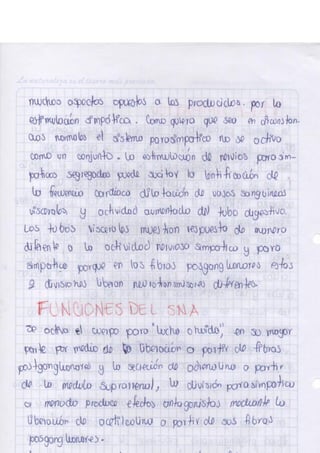 La naturaleza es el tesoro más preciado
muchos aspectos opuestos a los producidos. por la
estimulación simpótica. Como quiera que sea en circunstan-
cias normales el sistema parasimpatico no se activa
como un conjunto. La estimulación de nervios para sim-
paticos segregados puede suscitar la lentificación de
la frecuencia cardiaca dilatación de vasos sanguineos
viscerales y actividad aumentada del tubo digestivo.
Los tubos viscerales muestran respuesta de manera
difiente a la actividad nerviosa simpatica y para
simpatica porque en las fibras posganglionores estas
2 divisiones liberan neurotransmisores diferentes.
FUNCIONES DEL SNA
Se activa el cuerpo para "lucha o huida", en su mayor
parte por medio de la liberación a partir de fibras
postganglionores y la secreción de adrenalina a partir
de la medula suprarrenal, la división parasimpatica
a menudo produce efectos antagonistas mediante la
liberación de acetilcolina a partir de sus fibras
posganglionores.